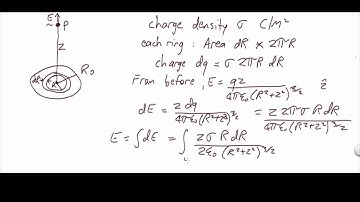 E
P
z
R₀
dR
R
charge density σ C/m²
each ring : Area dR × 2πR
charge dq = σ 2πR dR
From before, E = qz / 4πε₀(R²+z²)^3/2 ẑ
dE = z dq / 4πε₀(R²+z²)^3/2 = z 2πσ R dR / 4πε₀(R²+z²)^3/2
E = ∫dE = ∫ zσ R dR / 2ε₀ (R²+z²)^3/2